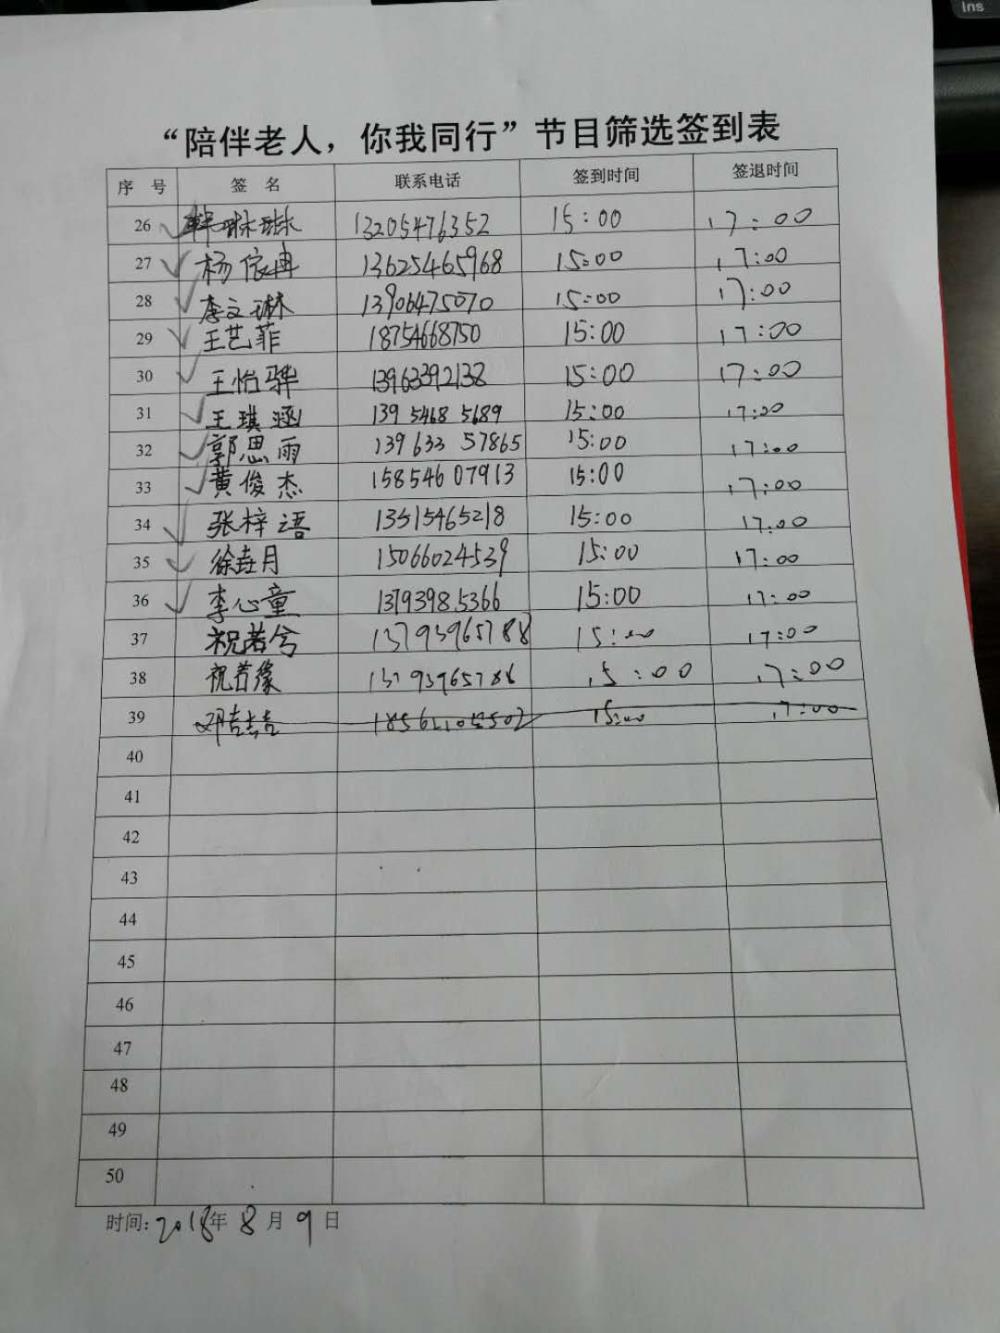 Ins
“陪伴老人，你我同行”节目筛选签到表
序 号 签 名 联系电话 签到时间 签退时间
26 韩琳琳 13205476352 15:00 17:00
27 杨依冉 13625465968 15:00 17:00
28 李文琳 13906475070 15:00 17:00
29 王艺菲 18754668750 15:00 17:00
30 王怡骅 13963392138 15:00 17:00
31 王琪涵 139 5468 5689 15:00 17:00
32 郭思雨 139 633 57865 15:00 17:00
33 黄俊杰 158546 07913 15:00 17:00
34 张梓语 13515465218 15:00 17:00
35 徐垚月 15066024539 15:00 17:00
36 李心童 13793985366 15:00 17:00
37 祝若兮 13793965788 15:00 17:00
38 祝若 13793965788 15:00 17:00
39 邓喆 15:00 17:00
40
41
42
43
44
45
46
47
48
49
50
时间：2018年 8 月 9 日